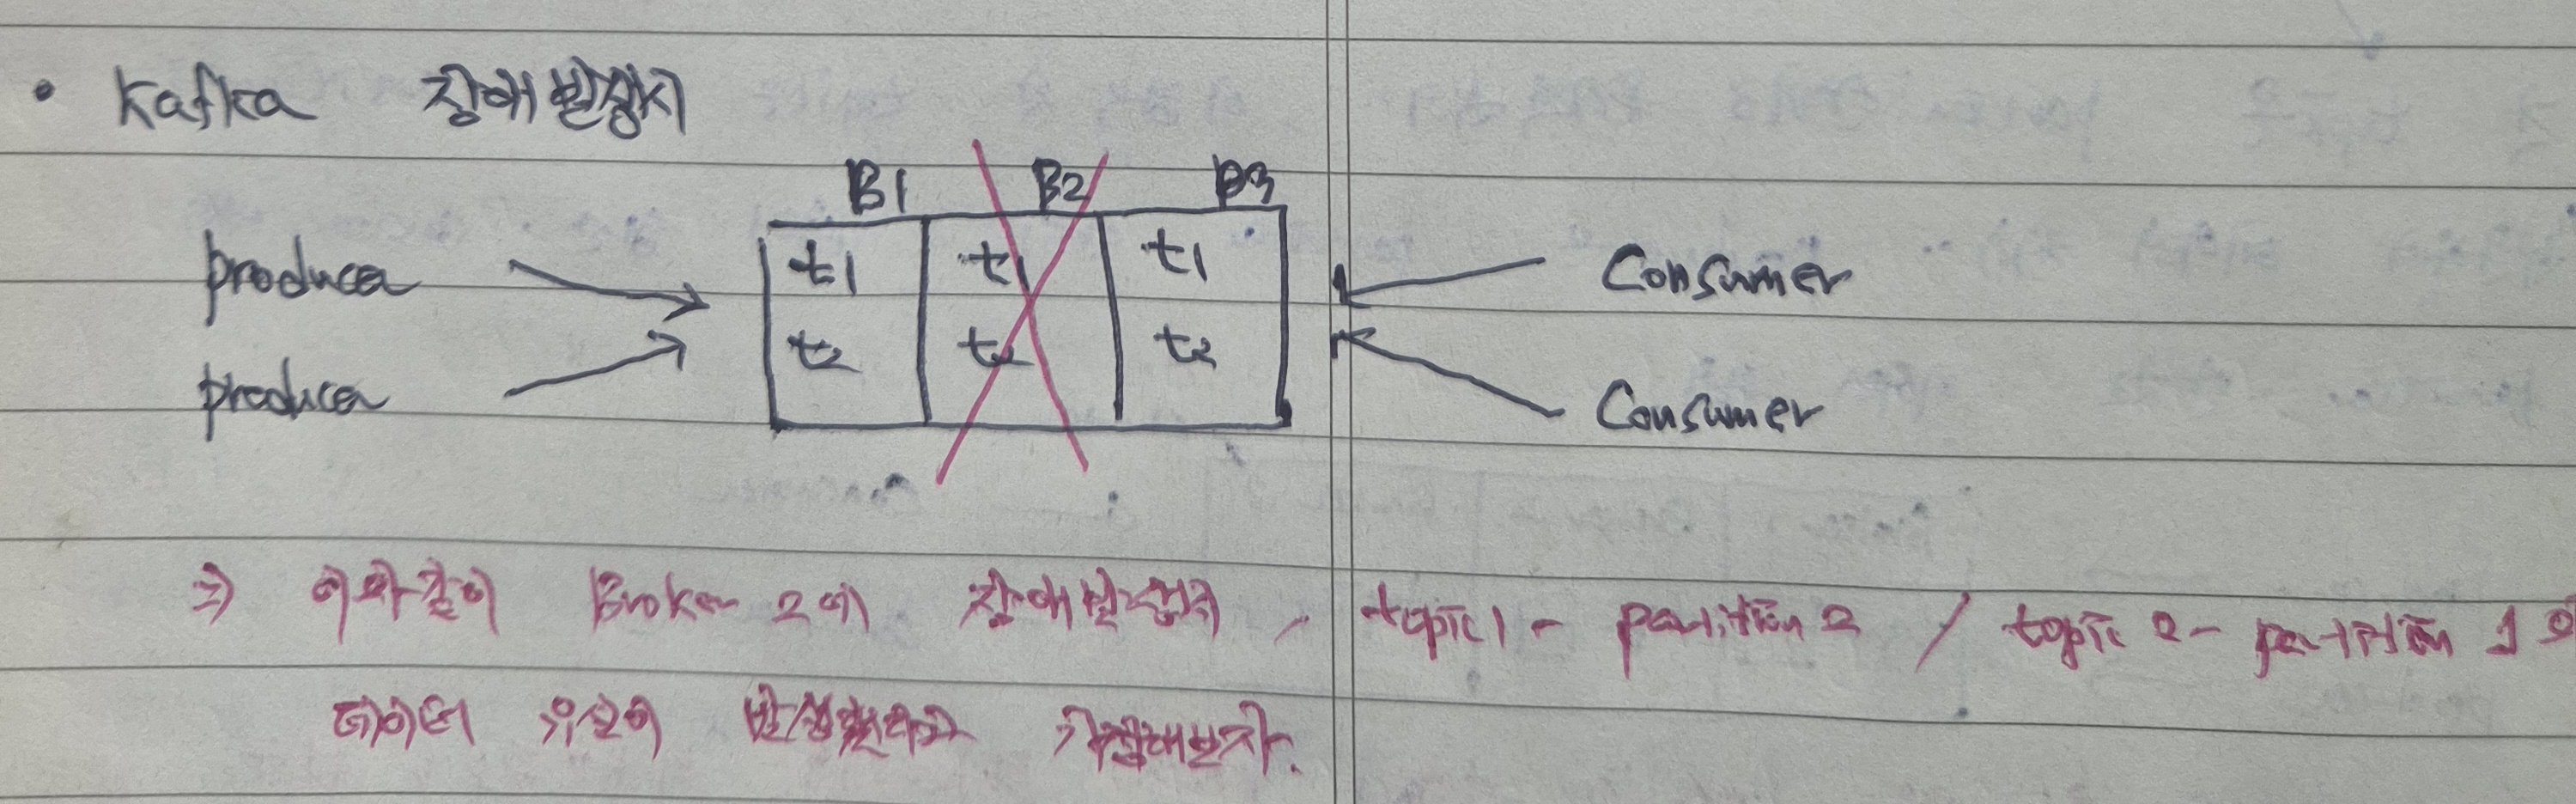 • Kafka 장애 발생시
B1 B2 B3
producer t1 t1 t1 Consumer
producer t2 t2 t2 Consumer
⇒ 이와같이 Broker 2에 장애발생시, topic1 - partition 2 / topic 2 - partition 1의
데이터 유실이 발생했다고 가정해보자.